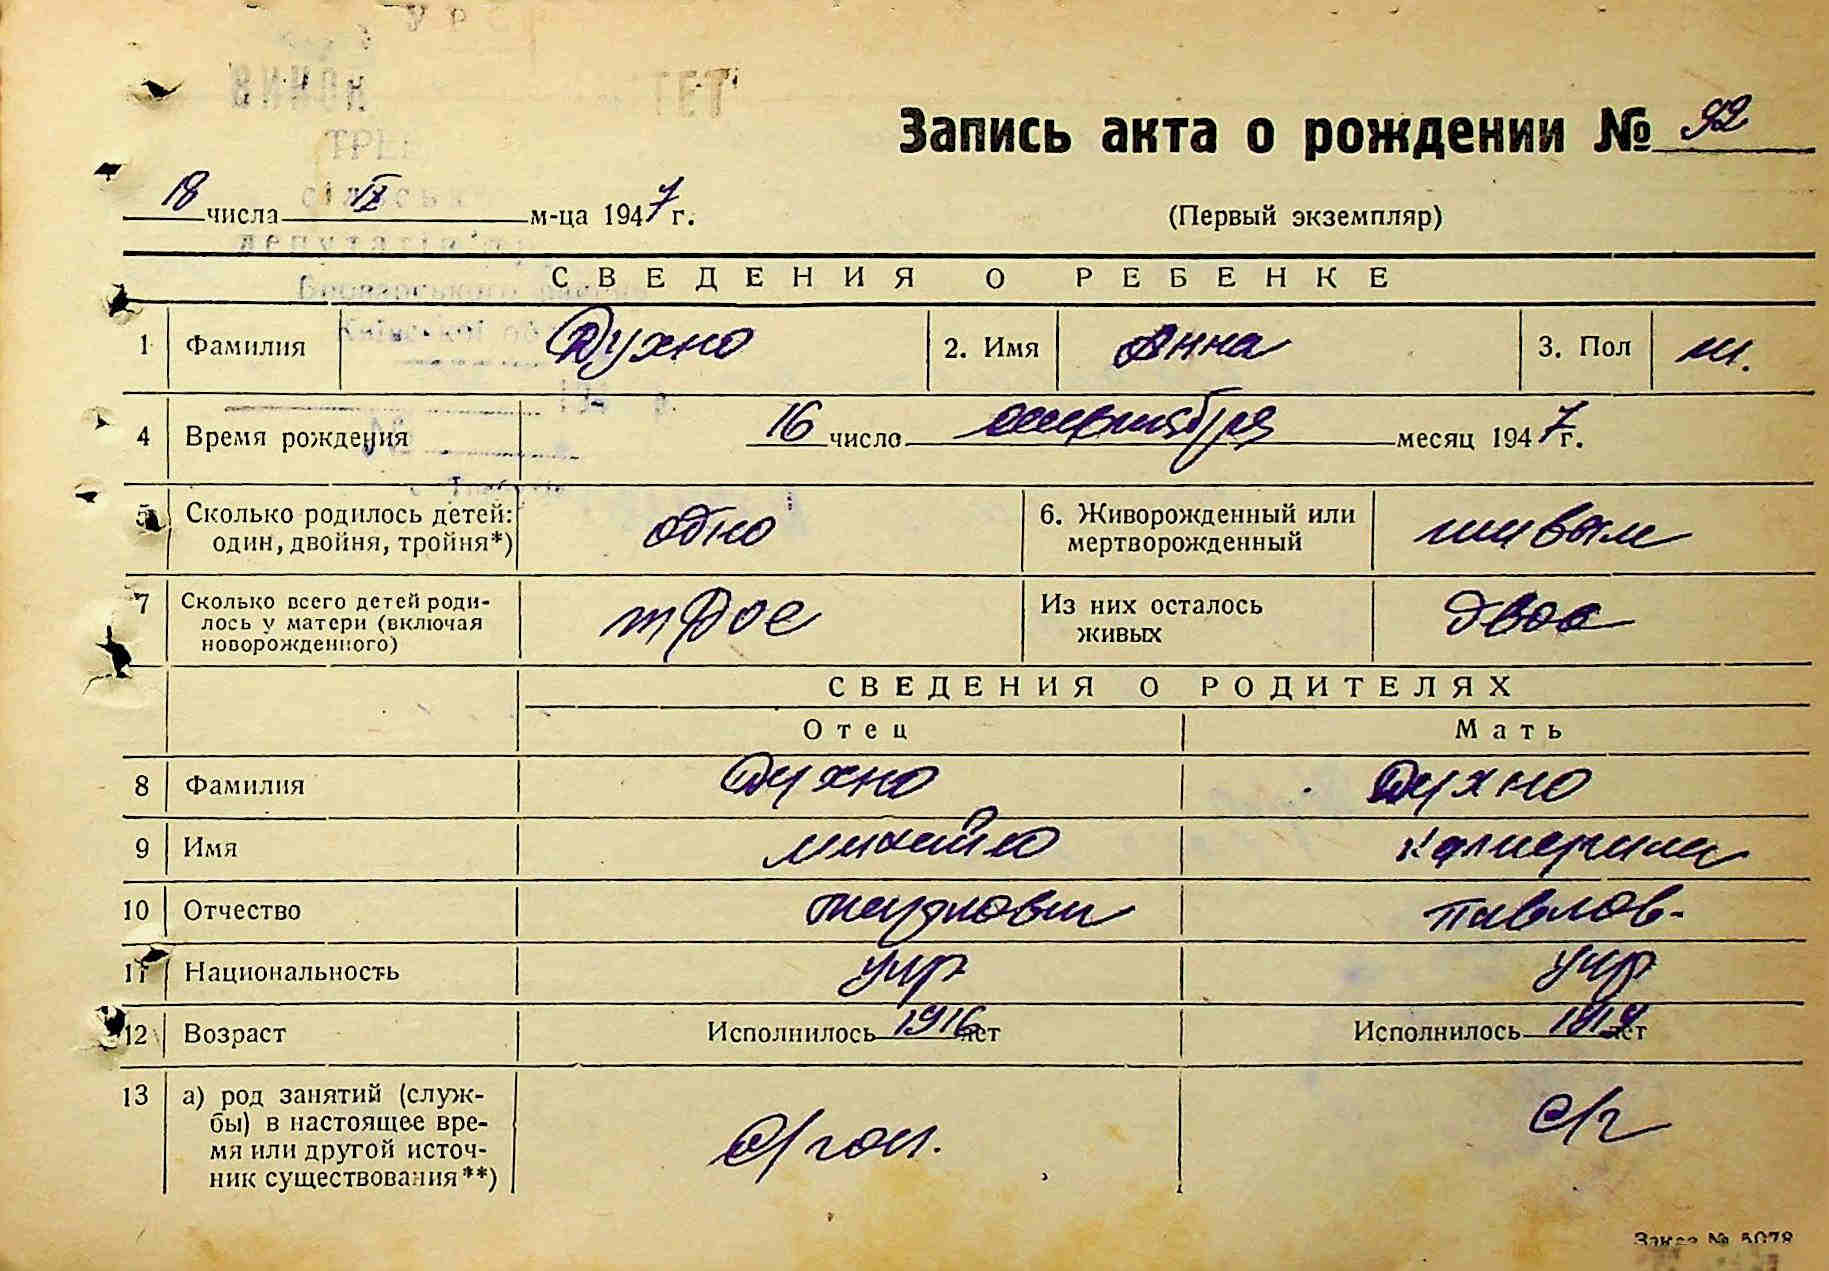 Запись акта о рождении № 92
18 числа IX м-ца 1947 г.
(Первый экземпляр)
СВЕДЕНИЯ О РЕБЕНКЕ
1 Фамилия Духно 2. Имя Анна 3. Пол ж.
4 Время рождения 16 число сентября месяц 1947 г.
5 Сколько родилось детей: один, двойня, тройня*) одно 6. Живорожденный или мертворожденный живым
7 Сколько всего детей роди-
лось у матери (включая
новорожденного) трое Из них осталось живых двое
СВЕДЕНИЯ О РОДИТЕЛЯХ
Отец Мать
8 Фамилия Духно Духно
9 Имя Михайло
10 Отчество Павлов-
11 Национальность укр укр
12 Возраст Исполнилось 1916 лет Исполнилось лет
13 а) род занятий (служ-
бы) в настоящее вре-
мя или другой источ-
ник существования**)
с/г
Заказ № 5078